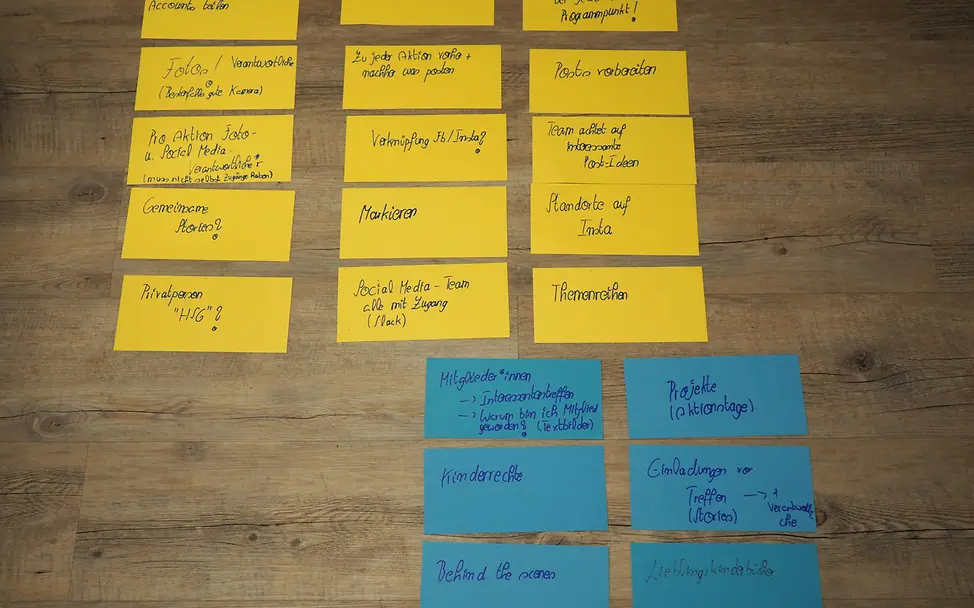 Accounts teilen
Programmpunkt!
Fotos! Verantwortliche
(Bestenfalls gute Kamera)
Zu jeder Aktion vorher +
nachher was posten
Posts vorbereiten
Pro Aktion Foto-
u. Social Media-
Verantwortliche*r
(muss nicht selbst Zugänge haben)
Verknüpfung Fb/Insta?
Team achtet auf
interessante
Post-Ideen
Gemeinsame
Stories?
Markieren
Standorte auf
Insta
Privatperson
"HSG"?
Social Media-Team
alle mit Zugang
(Slack)
Themenreihen
Mitglieder*innen
-> Interessentantreffen
-> Warum bin ich Mitglied
geworden? (Textbilder)
Projekte
(Aktionstage)
Kinderrechte
Einladungen vor
Treffen -> 1
(Stories) Verantwortli-
che
Behind the scenes
Lieblingskinderbücher